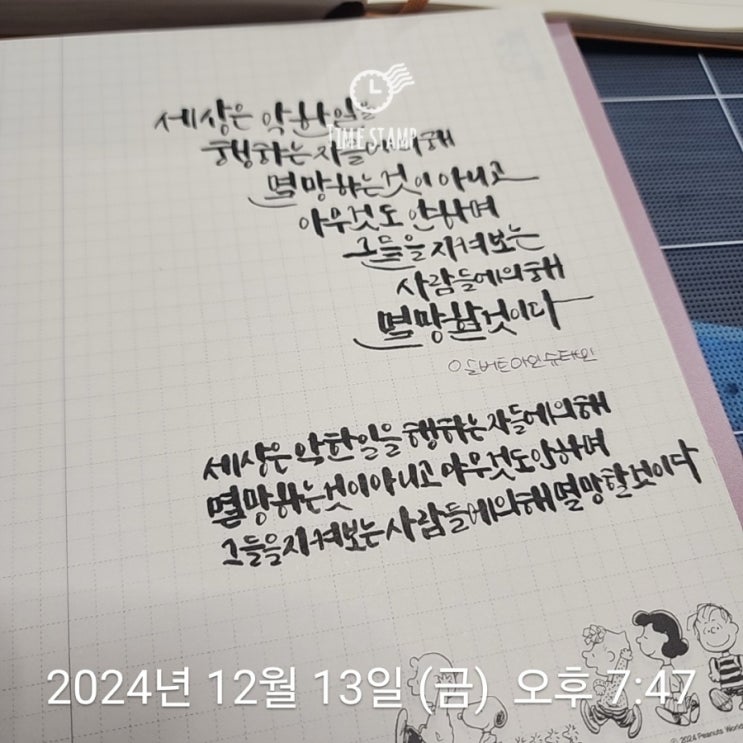 세상은 악한일을
TIME STAMP
행하는 자들에의해
멸망하는것이아니고
아무것도 안하며
그들을 지켜보는
사람들에의해
멸망할것이다
알버트아인슈타인
세상은 악한일을 행하는 자들에의해
멸망하는것이아니고 아무것도안하며
그들을지켜보는사람들에의해멸망할것이다
2024년 12월 13일 (금) 오후 7:47
© 2024 Peanuts World